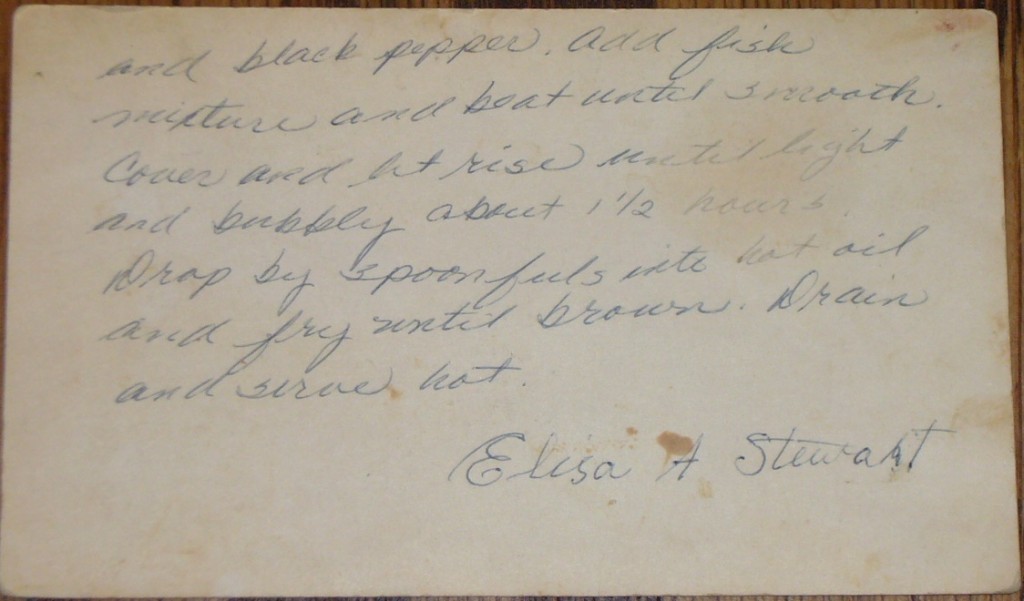 and black pepper. Add fish
mixture and beat until smooth.
Cover and let rise until light
and bubbly about 1 1/2 hours.
Drop by spoonfuls into hot oil
and fry until brown. Drain
and serve hot.
Elisa A Stewart